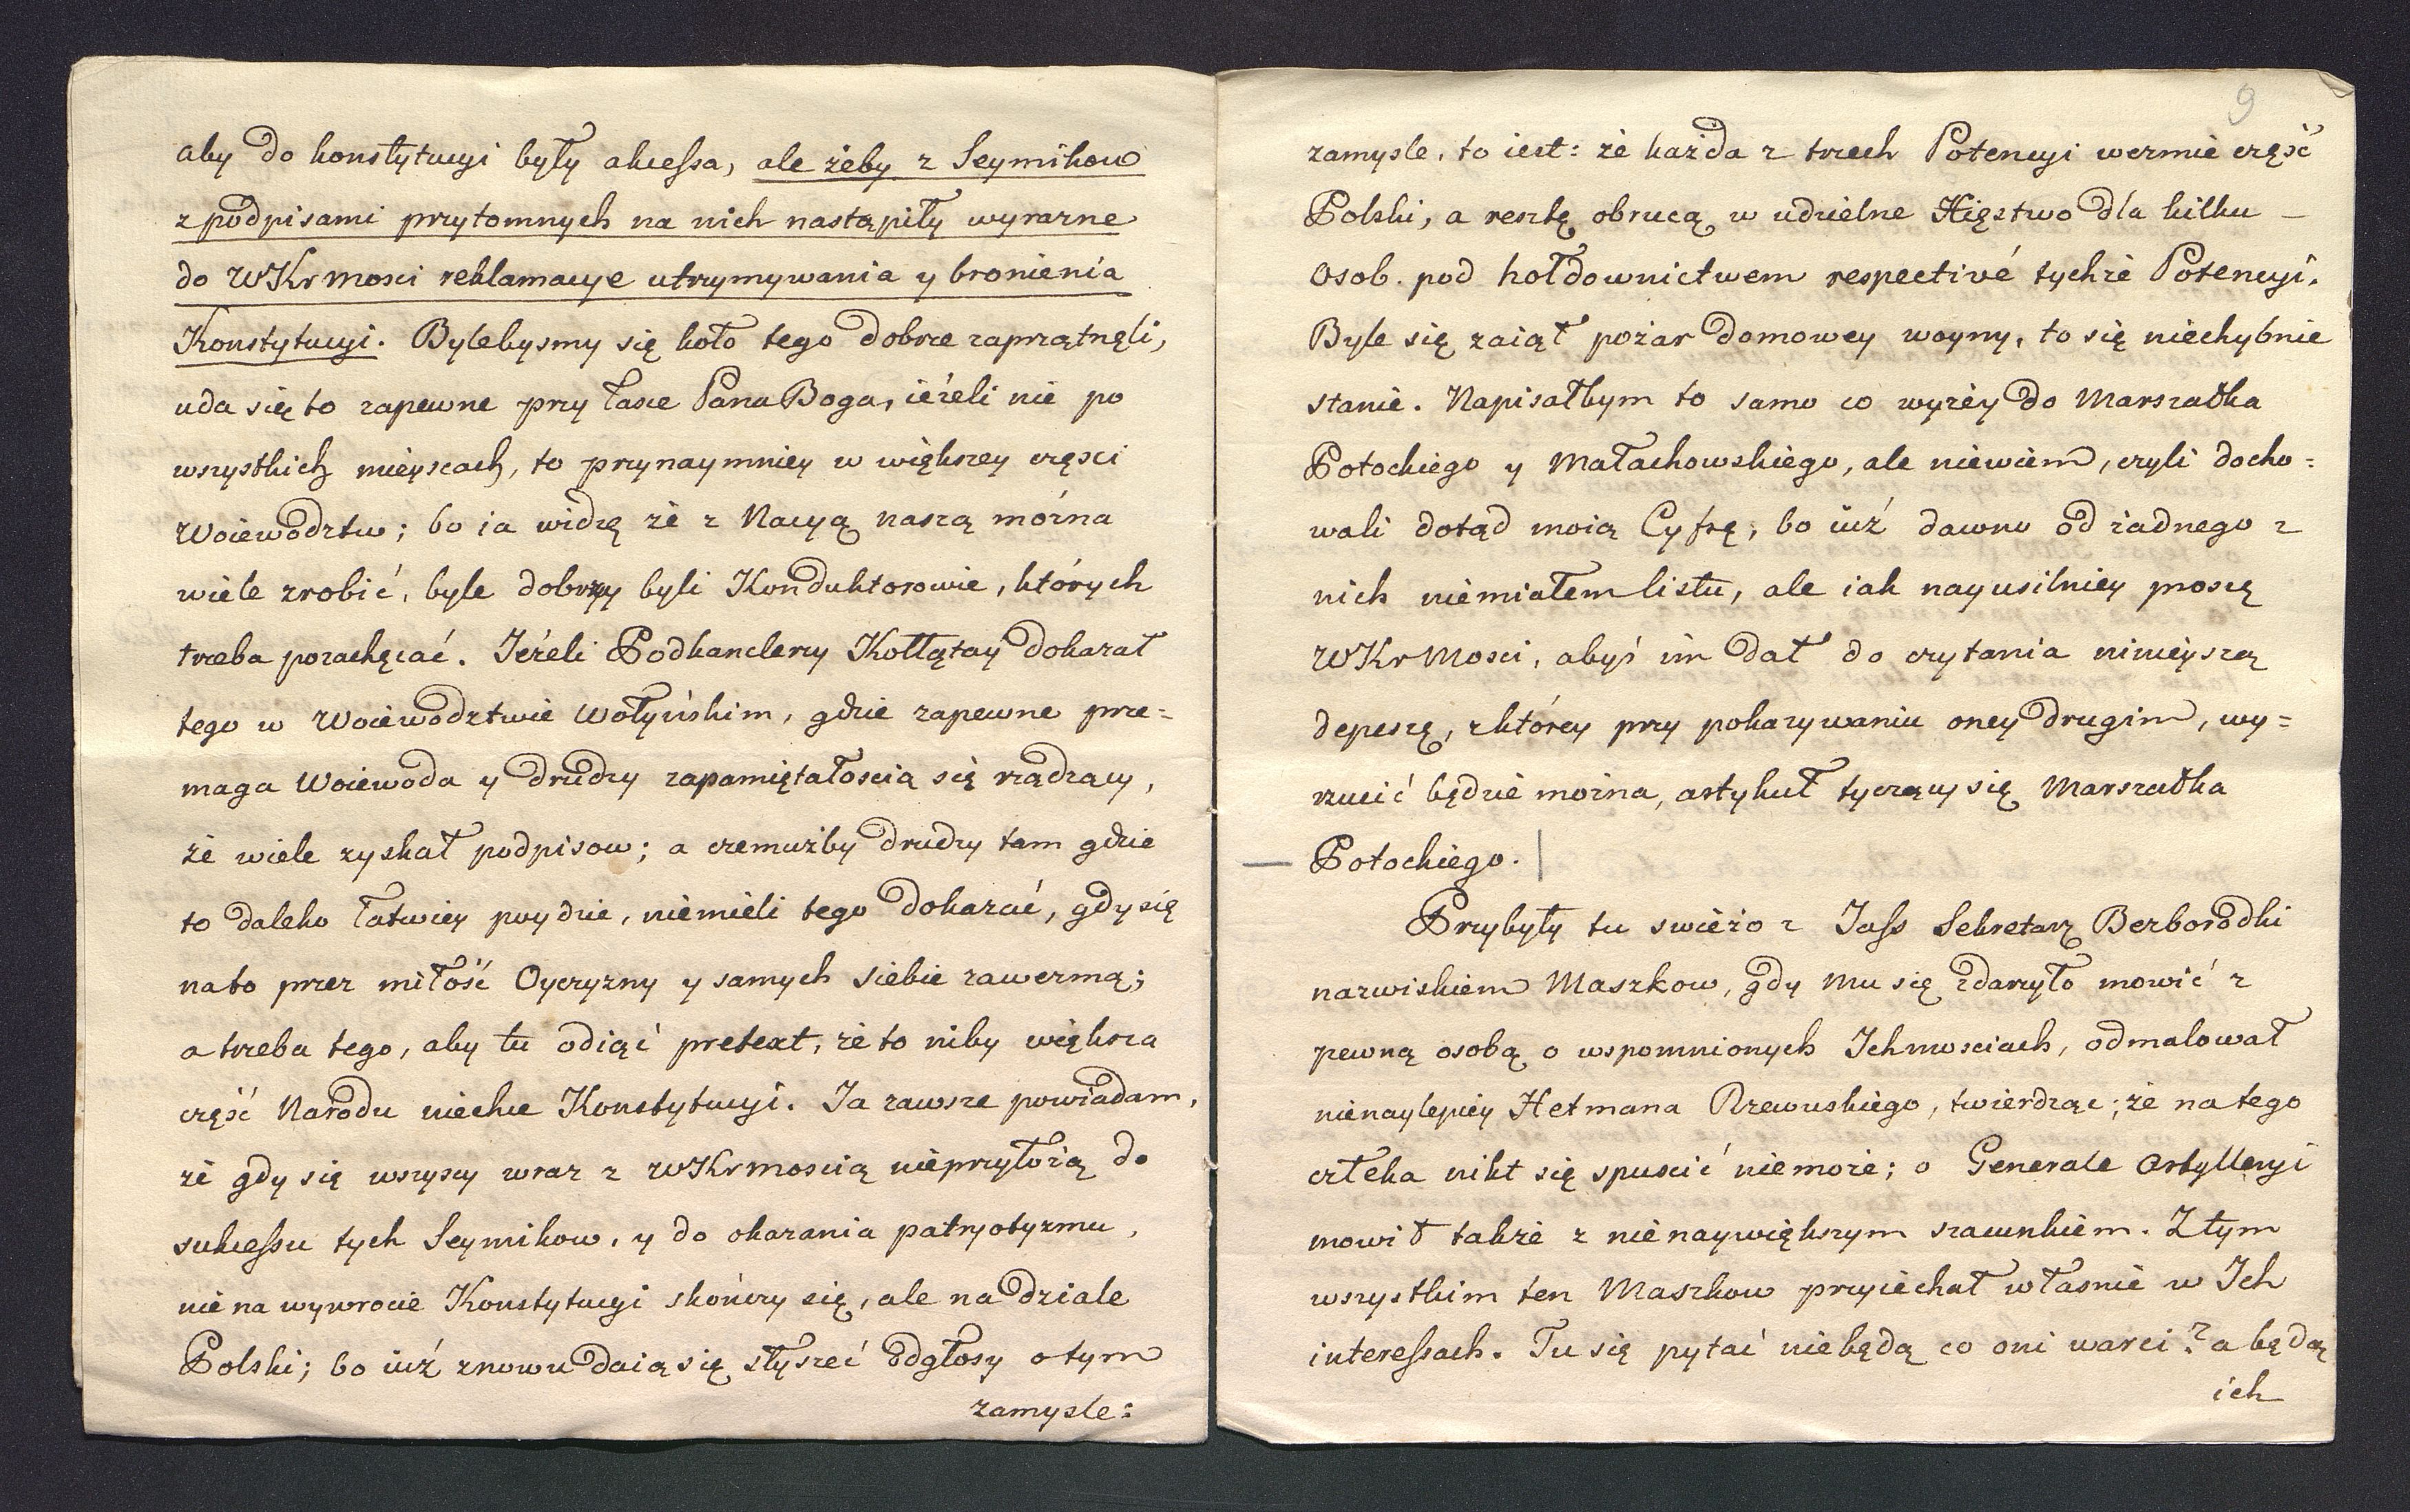 aby do konstytucyi były akcessa, ale żeby z Seymikow
z podpisami przytomnych na nich nastąpiły wyrazne
do WKrMosci reklamacye utrzymywania y bronienia
Konstytucyi. Bylebysmy się koło tego dobrze zaprzątnęli,
uda się to zapewne przy łasce Pana Boga, ieżeli nie po
wszystkich mieyscach, to przynaymniey w większey częsci
Woiewodztw; bo ia widzę że z Nacyą naszą można
wiele zrobić, byle dobrzy byli Konduktorowie, których
trzeba pozachęcać. Ieżeli Podkanclerzy Kołłątay dokazał
tego w Woiewodztwie Wołyńskim, gdzie zapewne prze=
maga Woiewoda y drudzy zapamiętałoscią się rządzący,
że wiele zyskał podpisow; a czemużby drudzy tam gdzie
to daleko łatwiey poydzie, niemieli tego dokazać, gdy się
na to przez miłość Oyczyzny y samych siebie zawezmą;
a trzeba tego, aby tu odiąć pretext, że to niby większa
część Narodu niechce Konstytucyi. Ia zawsze powiadam,
że gdy się wszyscy wraz z WKrMoscią nieprzyłożą do
sukcessu tych Seymikow, y do okazania patryotyzmu,
nie na wywrocie Konstytucyi skończy się, ale na dziale
Polski; bo iuż znowu daią się słyszeć odgłosy o tym
zamysle:
9
zamysle, to iest: że każda z trzech Potencyi wezmie część
Polski, a resztę obrucą w udzielne Xięstwo dla kilku
Osob. pod hołdownictwem respectivé tychże Potencyi.
Byle się zaiął pożar domowey woyny, to się niechybnie
stanie. Napisałbym to samo co wyżey do Marszałka
Potockiego y Małachowskiego, ale niewiem, czyli docho=
wali dotąd moią Cyfrę, bo iuż dawno od żadnego z
nich niemiałem listu, ale iak nayusilniey proszę
WKrMosci, abyś im dał do czytania ninieyszą
depeszę, z którey przy pokazywaniu oney drugim, wy=
rzucić będzie można, artykuł tyczący się Marszałka
Potockiego.
Przybyły tu swieżo z Jass Sekretarz Bezborodki
nazwiskiem Maszkow, gdy mu się zdarzyło mowić z
pewną osobą o wspomnionych Ichmosciach, odmalował
nienaylepiey Hetmana Rzewuskiego, twierdząc; że na tego
człeka nikt się spuscić niemoże; o Generale Artylleryi
mowił także z nienaywiększym szacunkiem. Z tym
wszystkim ten Maszkow przyiechał własnie w Ich
interessach. Tu się pytać niebędą co oni warci? a będą
ich